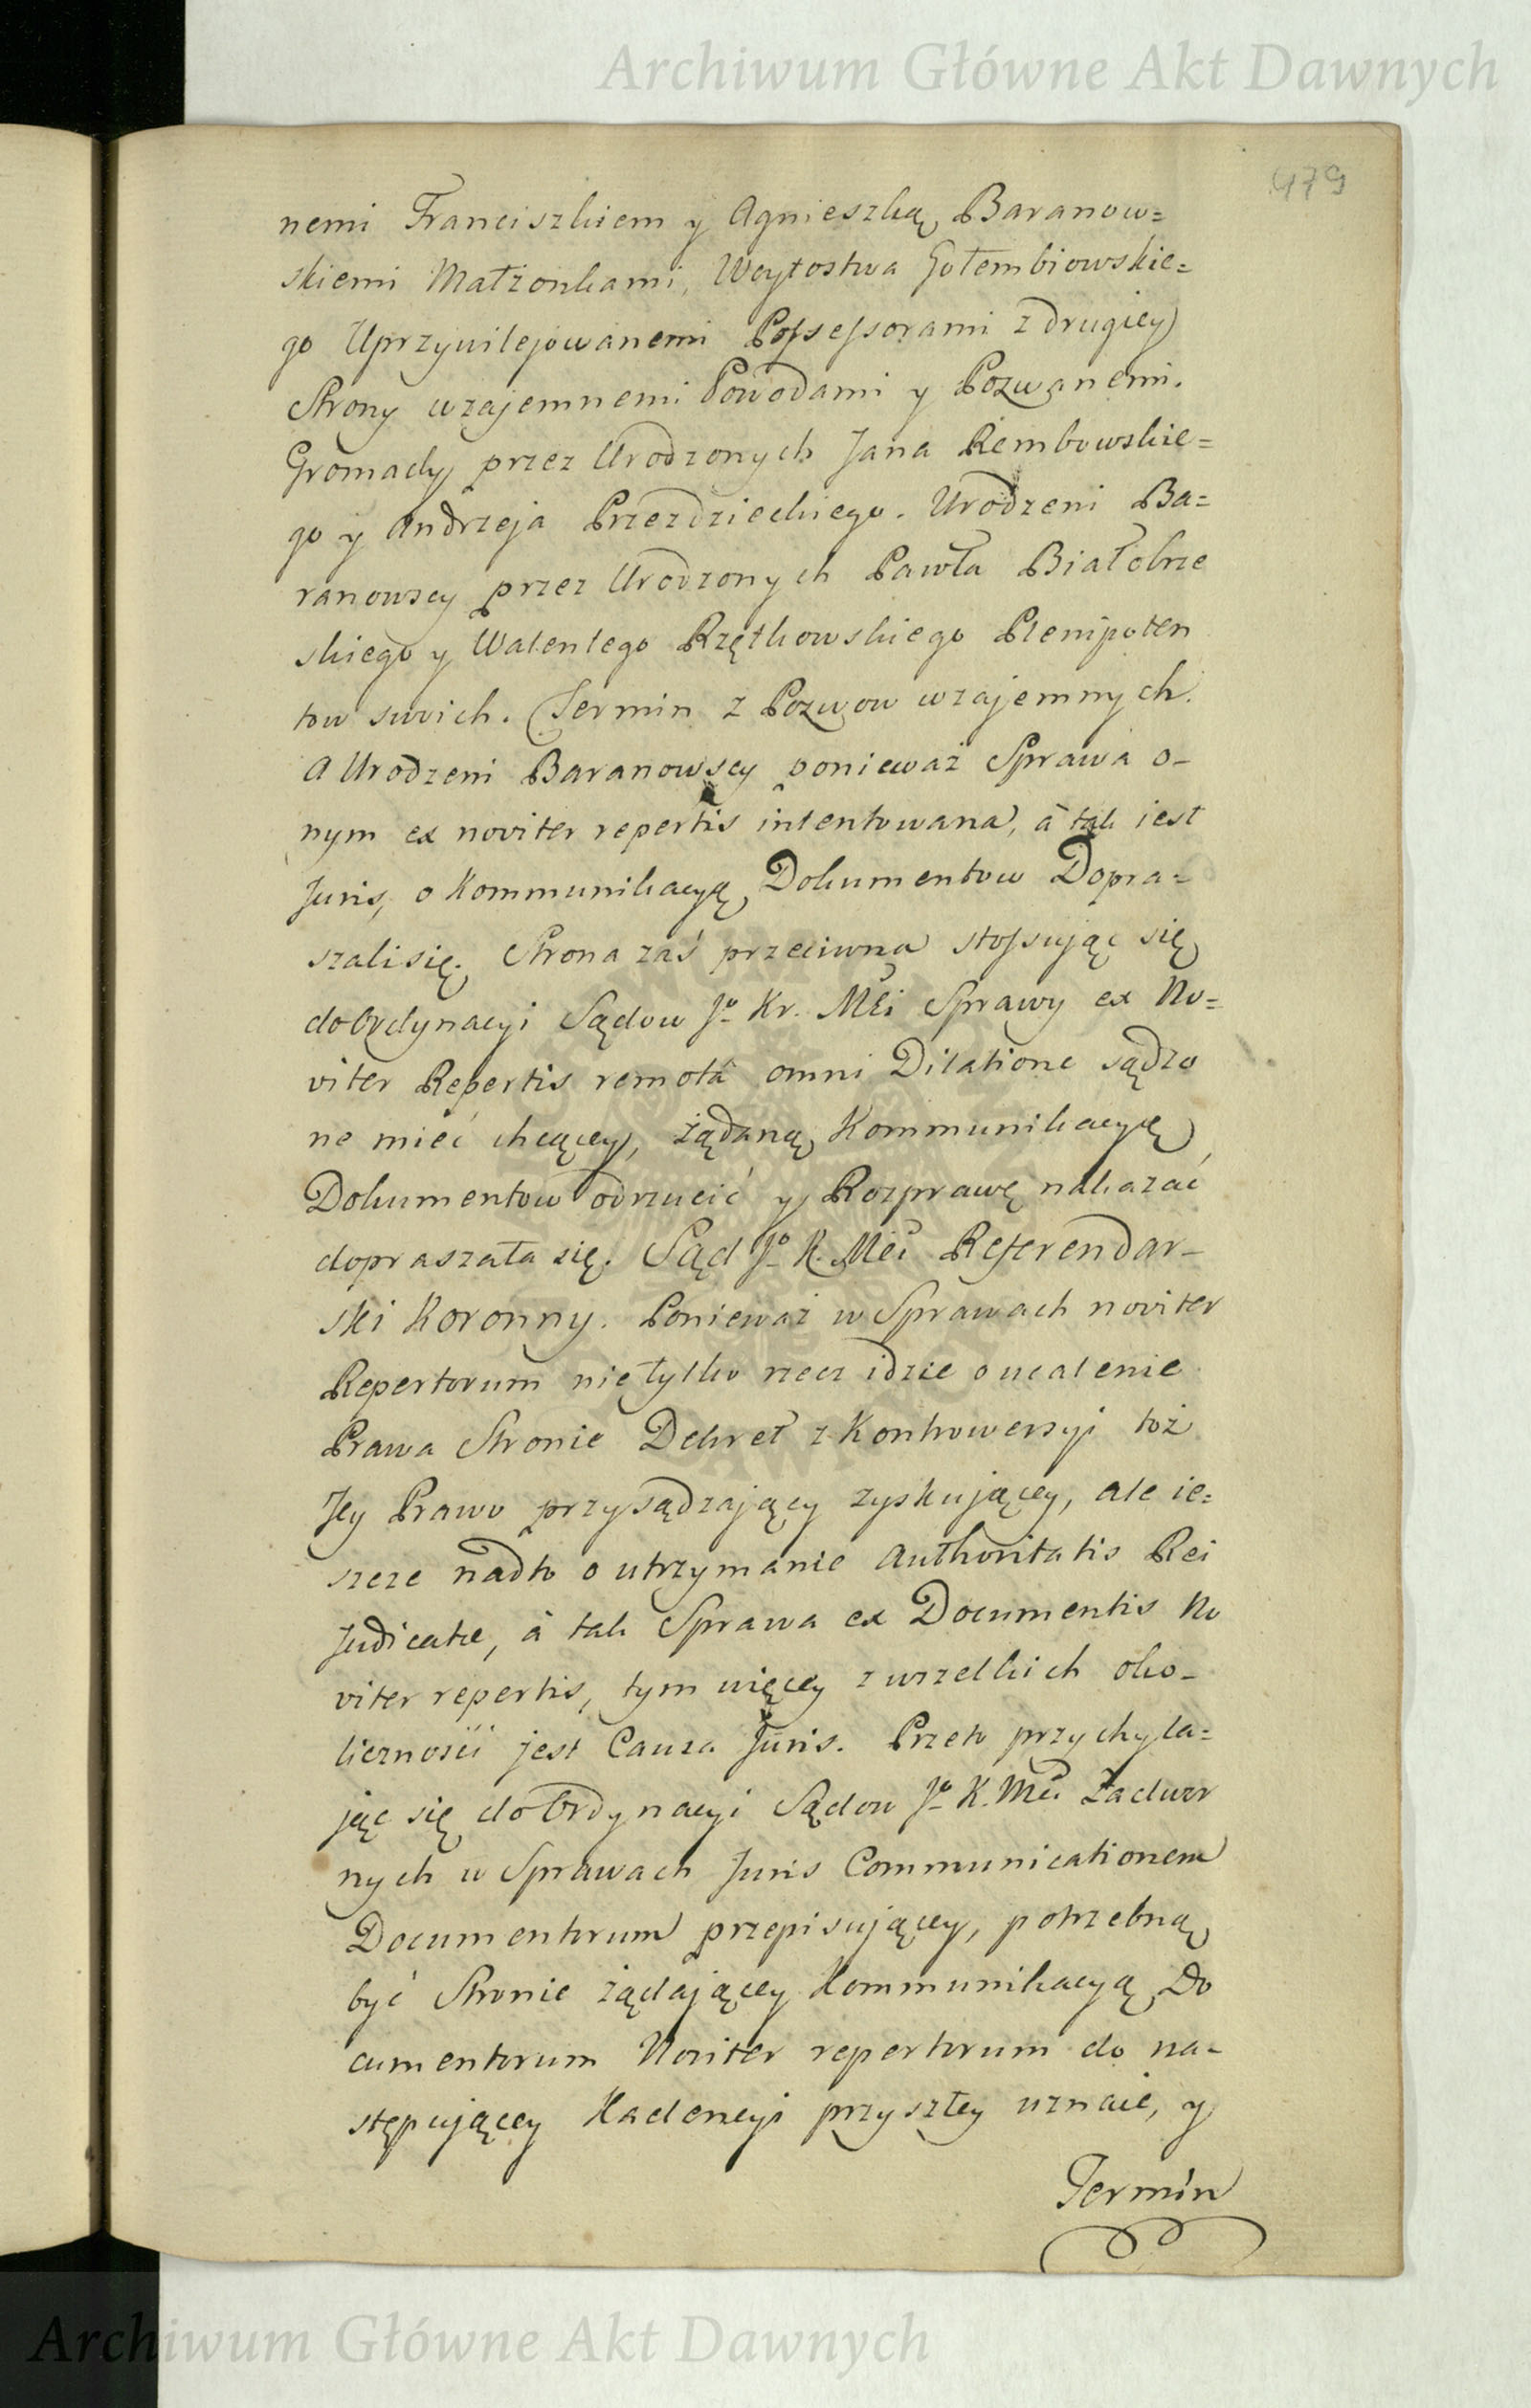 Archiwum Główne Akt Dawnych
479
nemi Franciszkiem y Agnieszką Baranow=
skiemi Małżonkami, Woytostwa Gołembiowskie=
go Uprzywilejowanemi Possessorami z drugiey
Strony wzajemnemi Powodami y Pozwanemi.
Gromady przez Urodzonych Jana Rembowskie=
go y Andrzeja Przezdzieckiego. Urodzeni Ba=
ranowscy przez Urodzonych Pawła Białobrze
skiego y Walentego Rzętkowskiego Plenipoten
tow swoich. Termin z Pozwow wzajemnych.
A Urodzeni Baranowscy ponieważ Sprawa o-
nym ex noviter repertis intentowana, â tak iest
Juris, o Kommunikacyą Dokumentow Dopra-
szali się. Strona zaś przeciwna stossując się
do Ordynacyi Sądow Jo Kr. Mci Sprawy ex No=
viter Repertis remotâ omni Dilatione sądzo
ne mieć chcącey, żądaną Kommunikacyę
Dokumentow odrzucić y Rozprawę nakazać
dopraszała się. Sąd Jo K. Mci Referendar-
ski Koronny. Ponieważ w Sprawach noviter
Repertorum nie tylko rzecz idzie o ucalenie
Prawa Stronie Dekret z Kontrowersyi toż
Jey Prawo przysądzający zyskującey, ale ie=
szcze nadto o utrzymanie Authoritatis Rei
Judicatæ, â tak Sprawa ex Documentis No
viter repertis, tym więcey z wszelkich oko-
liczności jest Causa Juris. Przeto przychyla=
jąc się do Ordynacyi Sądow Jo K. Mci Zadwor
nych w Sprawach Juris Communicationem
Documentorum przepisującey, potrzebną
być Stronie żądającey Kommunikacyą Do
cumentorum Noviter repertorum do na-
stępującey Kadencyi przyszłey uznaie, y
Termin
Archiwum Główne Akt Dawnych